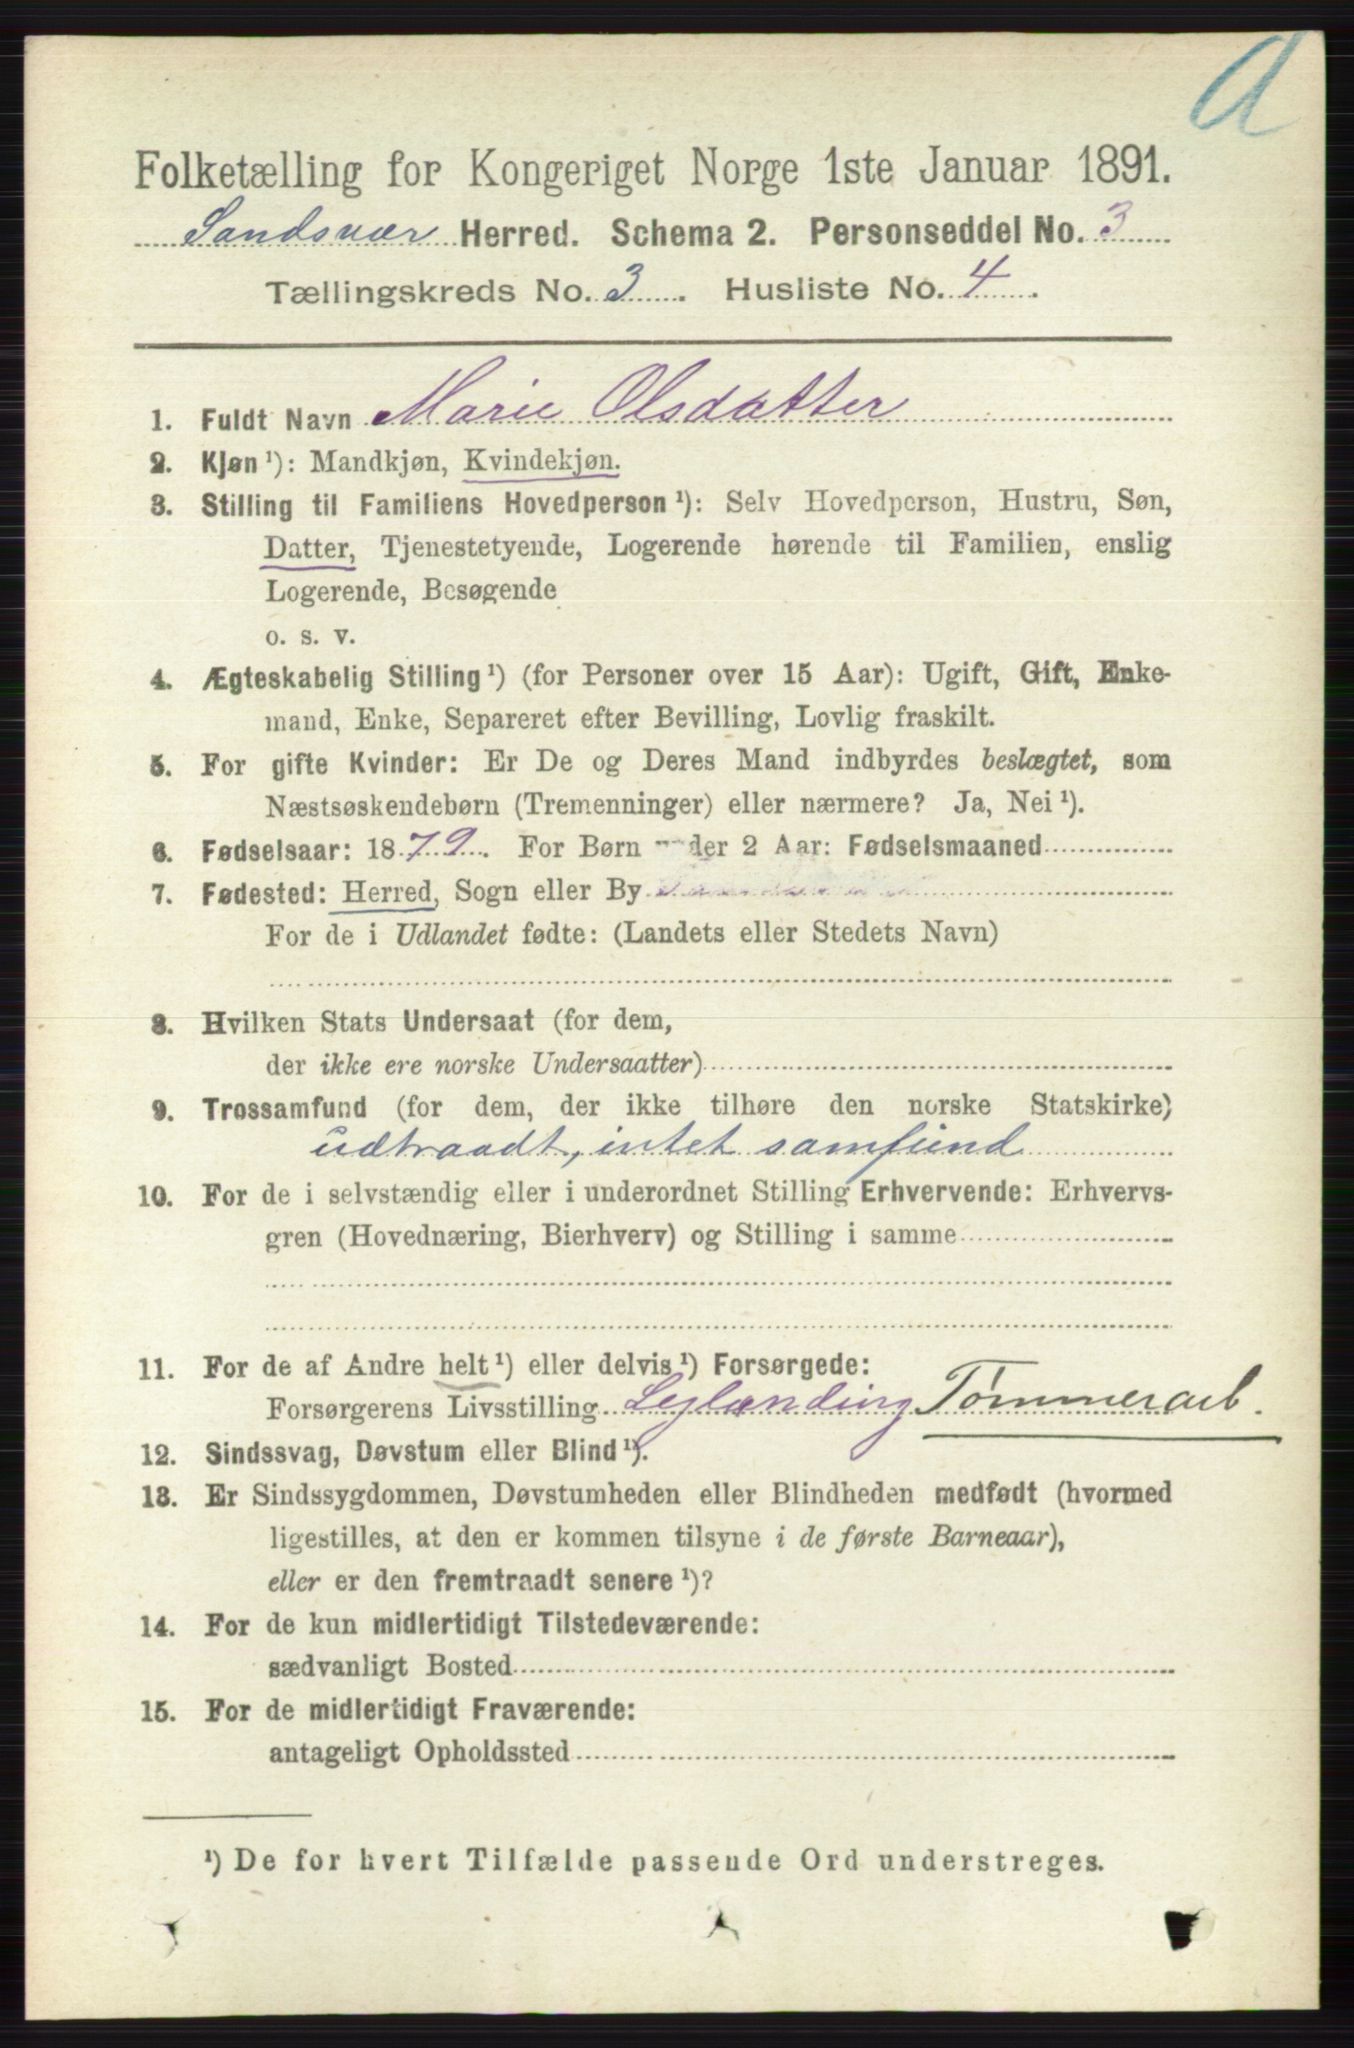 A
Folketælling for Kongeriget Norge 1ste Januar 1891.
Sandsvær Herred. Schema 2. Personseddel No. 3
Tællingskreds No. 3. Husliste No. 4.
1. Fuldt Navn Marie Olsdatter
2. Kjøn ¹): Mandkjøn, Kvindekjøn.
3. Stilling til Familiens Hovedperson ¹): Selv Hovedperson, Hustru, Søn,
Datter, Tjenestetyende, Logerende hørende til Familien, enslig
Logerende, Besøgende
o. s. v.
4. Ægteskabelig Stilling ¹) (for Personer over 15 Aar): Ugift, Gift, Enke-
mand, Enke, Separeret efter Bevilling, Lovlig fraskilt.
5. For gifte Kvinder: Er De og Deres Mand indbyrdes beslægtet, som
Næstsøskendebørn (Tremenninger) eller nærmere? Ja, Nei ¹).
6. Fødselsaar: 1879. For Børn under 2 Aar: Fødselsmaaned
7. Fødested: Herred, Sogn eller By
For de i Udlandet fødte: (Landets eller Stedets Navn)
8. Hvilken Stats Undersaat (for dem,
der ikke ere norske Undersaatter)
9. Trossamfund (for dem, der ikke tilhøre den norske Statskirke)
udtraadt, intet samfund
10. For de i selvstændig eller i underordnet Stilling Erhvervende: Erhvervs-
gren (Hovednæring, Bierhverv) og Stilling i samme
11. For de af Andre helt ¹) eller delvis ¹) Forsørgede:
Forsørgerens Livsstilling Leylænding Tømmerarb.
12. Sindssvag, Døvstum eller Blind ¹).
13. Er Sindssygdommen, Døvstumheden eller Blindheden medfødt (hvormed
ligestilles, at den er kommen tilsyne i de første Barneaar),
eller er den fremtraadt senere ¹)?
14. For de kun midlertidigt Tilstedeværende:
sædvanligt Bosted
15. For de midlertidigt Fraværende:
antageligt Opholdssted
¹) De for hvert Tilfælde passende Ord understreges.